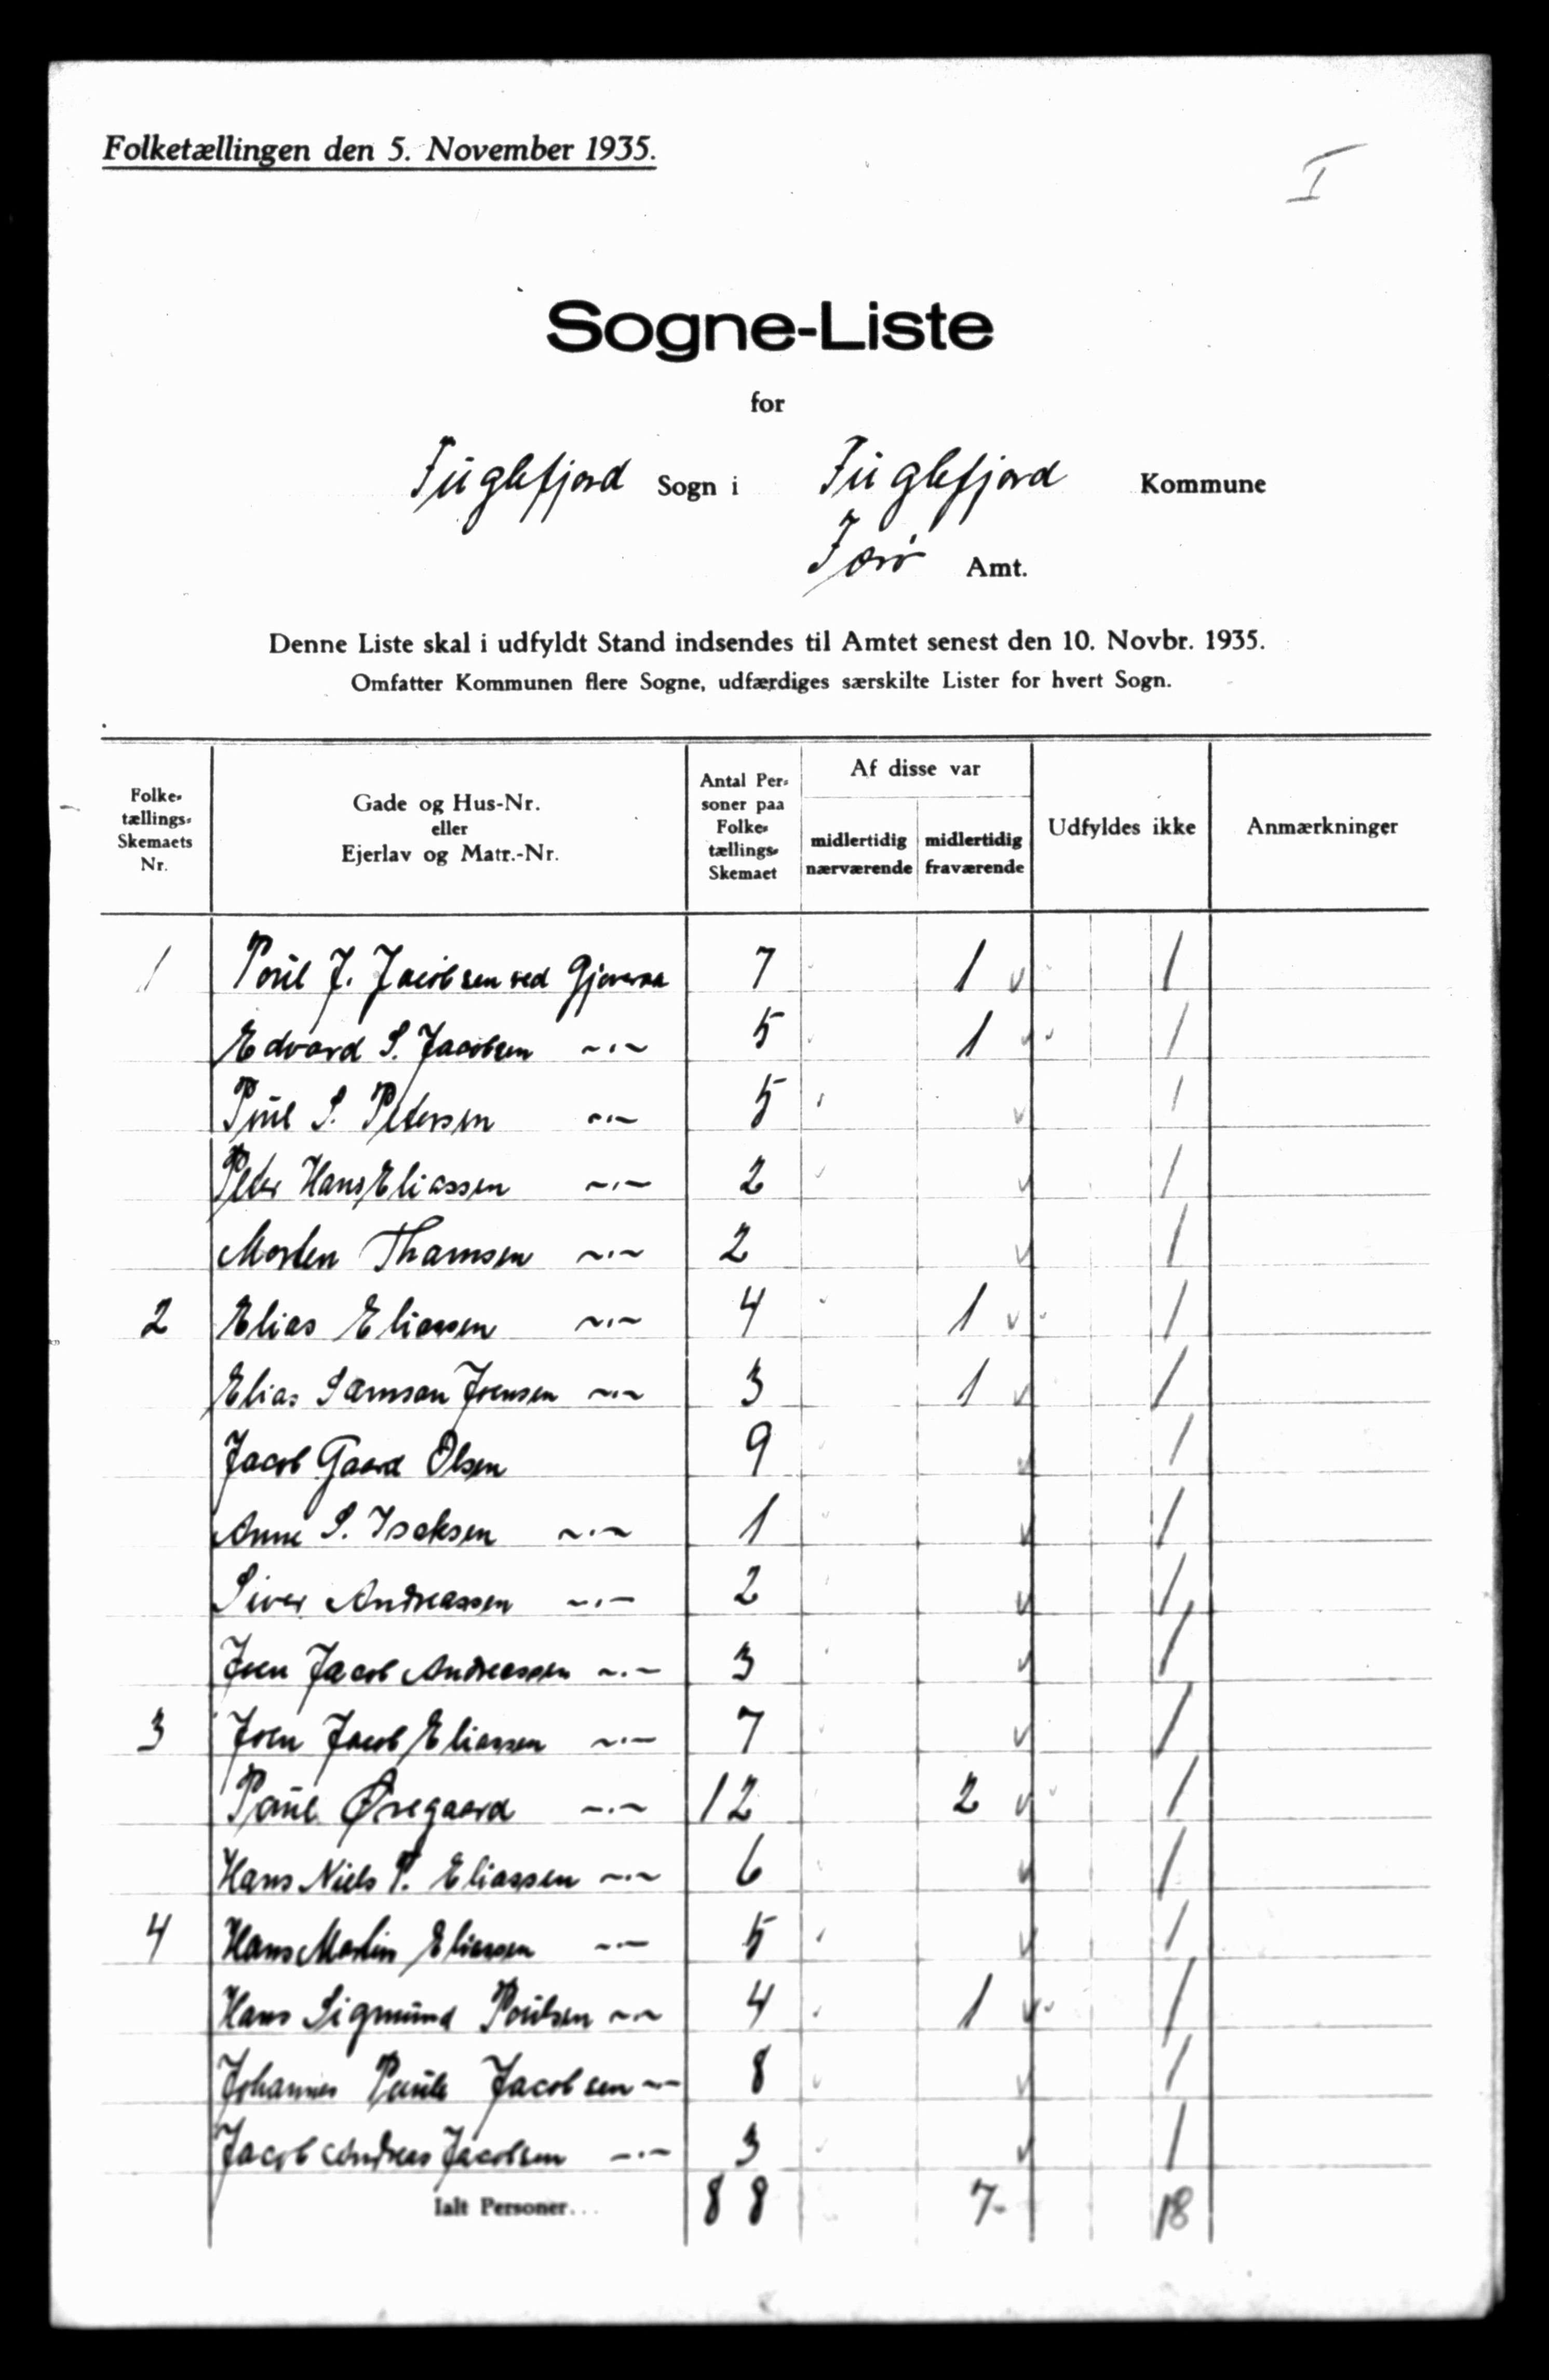 Folketællingen den 5. November 1935.
I
Sogne-Liste
for
Fuglefjord Sogn i Fuglefjord Kommune
Færø Amt.
Denne Liste skal i udfyldt Stand indsendes til Amtet senest den 10. Novbr. 1935.
Omfatter Kommunen flere Sogne, udfærdiges særskilte Lister for hvert Sogn.
Folke-
tællings-
Skemaets
Nr.
Gade og Hus-Nr.
eller
Ejerlav og Matr.-Nr.
Antal Per-
soner paa
Folke-
tællings-
Skemaet
Af disse var
midlertidig
nærværende
midlertidig
fraværende
Udfyldes ikke
Anmærkninger
1 Poul J. Jacobsen ved Gjoveraa 7 1 v 1
Edvard S. Jacobsen ~·~ 5 1 v 1
Poul S. Petersen ~·~ 5 v 1
Peter Hans Eliassen ~·~ 2 v 1
Morten Thomsen ~·~ 2 v 1
2 Elias Eliassen ~·~ 4 1 v 1
Elias Samson Joensen ~·~ 3 1 v 1
Jacob Gaard Olsen 9 v 1
Anne S. Isaksen ~·~ 1 v 1
Siver Andreassen ~·~ 2 v 1
Joen Jacob Andreassen ~·~ 3 v 1
3 Joen Jacob Eliassen ~·~ 7 v 1
Poul Øregaard ~·~ 12 2 v 1
Hans Niels P. Eliassen ~·~ 6 v 1
4 Hans Martin Eliassen ~·~ 5 v 1
Hans Sigmund Poulsen ~·~ 4 1 v 1
Johannes Paule Jacobsen ~·~ 8 v 1
Jacob Andreas Jacobsen ~·~ 3 v 1
Ialt Personer... 88 7 18